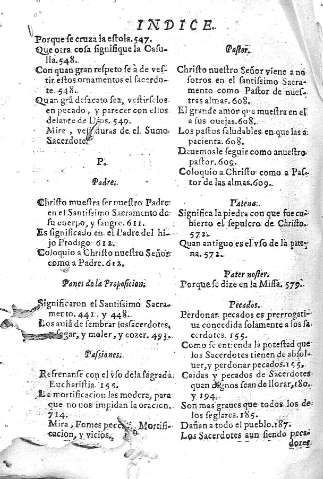 INDICE.
Porque se cruza la estola. 547.
Que otra cosa significa la Casu-
lla. 548.
Con quan gran respeto se à de ves-
tir estos ornamentos el sacerdo-
te. 548.
Quan grã desacato sea, vestirselos
en pecado, y parecer con ellos
delante de Dios. 549.
Mira, vestiduras de el Sumo
Sacerdote.
P.
Padres.
Christo muestra ser nuestro Padre
en el Santissimo Sacramento de
su cuerpo, y sangre. 611.
Es significado en el Padre del hi-
jo Prodigo 612.
Coloquio à Christo nuestro Señor
como a Padre. 612.
Panes de la Proposicion.
Significaron el Santissimo Sacra-
mento. 441. y 448.
Los auiã de sembrar los sacerdotes,
segar, y moler, y cozer. 493.
Passiones.
Refrenanse con el vso de la sagrada
Eucharistia. 155.
La mortificacion las modera, para
que no nos impidan la oracion.
714.
Mira, Fomes peccati, Mortifi-
cacion, y vicios.
Pastor.
Christo nuestro Señor viene a no-
sotros en el santissimo Sacra-
mento como Pastor de nues-
tras almas. 608.
El grande amor que muestra en el
a sus ouejas. 608.
Los pastos saludables en que las a-
pacienta. 608.
Deuemosle seguir como a nuestro
pastor. 609.
Coloquio a Christo como a Pas-
tor de las almas. 609.
Patena.
Significa la piedra con que fue cu-
bierto el sepulcro de Christo.
572.
Quan antiguo es el vso de la pate-
na. 572.
Pater noster.
Porque se dize en la Missa. 579.
Pecados.
Perdonar pecados es prerrogati-
ua concedida solamente a los sa-
cerdotes. 155.
Como se entenda la potestad que
los Sacerdotes tienen de absol-
uer, y perdonar pecados. 155.
Caidas y pecados de Sacerdotes
quan dignos sean de llorar, 180.
y 194.
Son mas graues que todos los de
los seglares. 185.
Dañan a todo el pueblo. 187.
Los Sacerdotes aun siendo peca-
dores